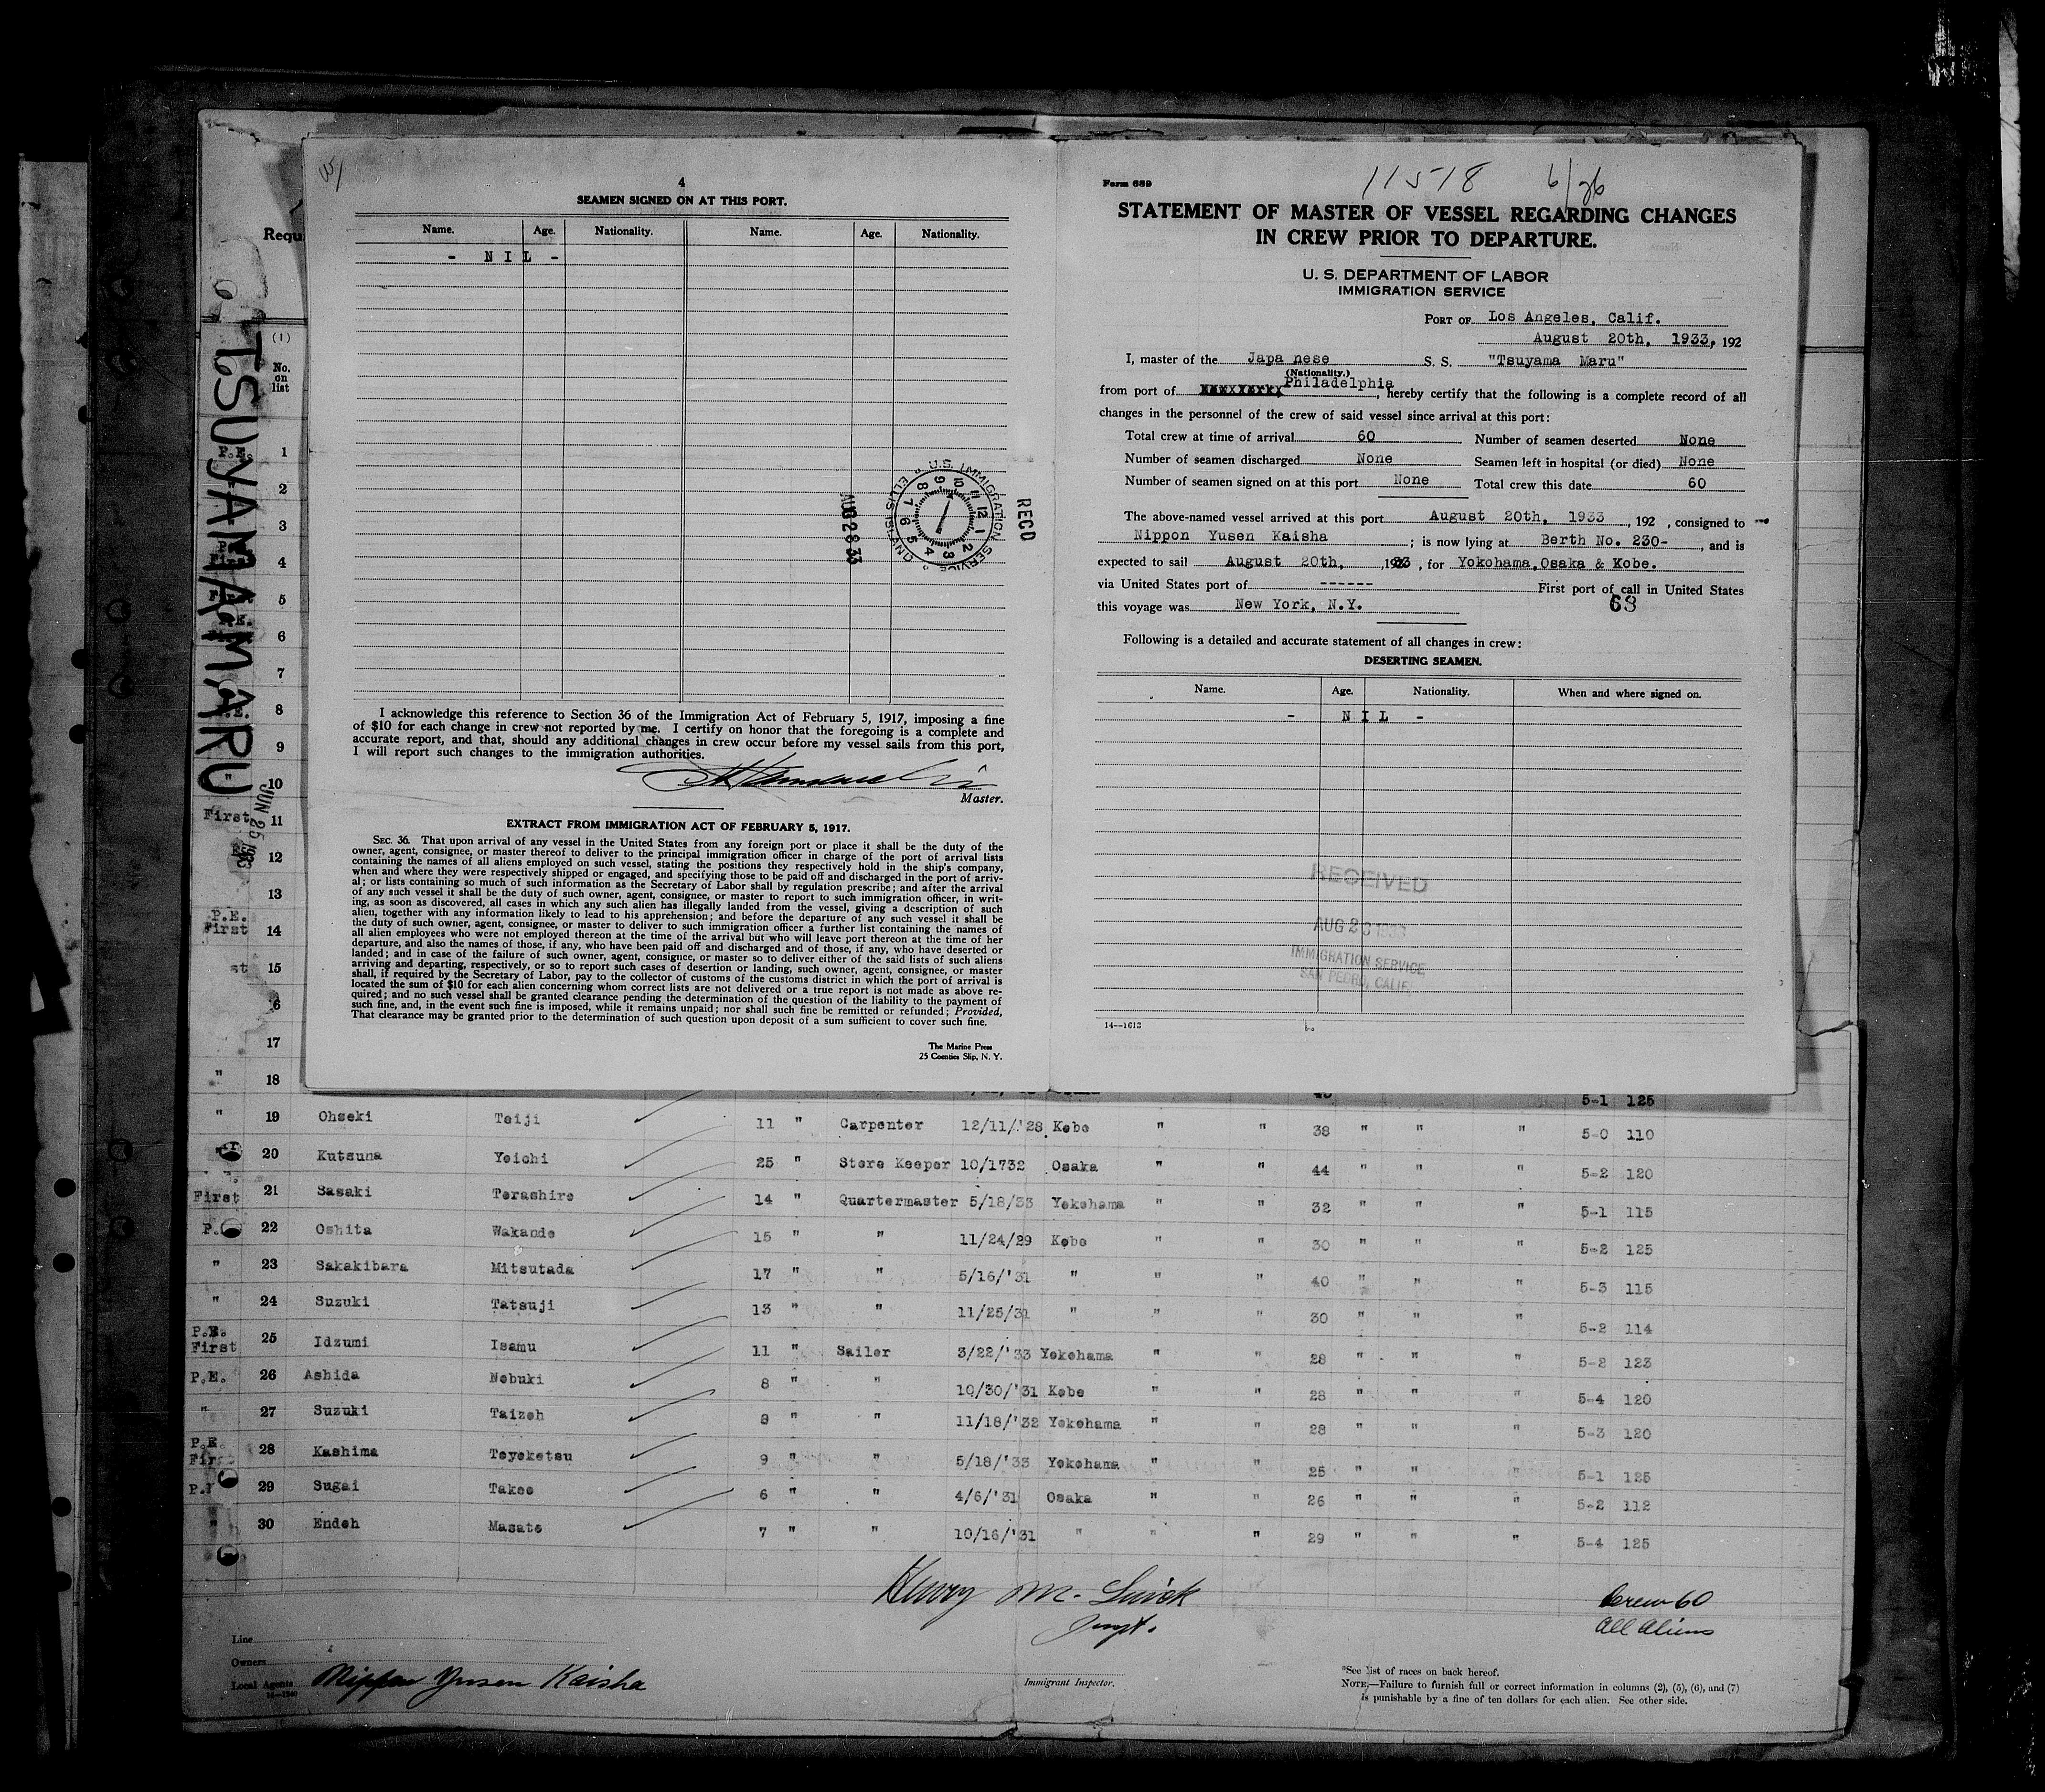 4
SEAMEN SIGNED ON AT THIS PORT.
Name. Age. Nationality. Name. Age. Nationality.
- N I L -
U.S. IMMIGRATION SERVICE ELLIS ISLAND
RECD
AUG 28 33
I acknowledge this reference to Section 36 of the Immigration Act of February 5, 1917, imposing a fine
of $10 for each change in crew not reported by me. I certify on honor that the foregoing is a complete and
accurate report, and that, should any additional changes in crew occur before my vessel sails from this port,
I will report such changes to the immigration authorities.
Master.
EXTRACT FROM IMMIGRATION ACT OF FEBRUARY 5, 1917.
SEC. 36. That upon arrival of any vessel in the United States from any foreign port or place it shall be the duty of the
owner, agent, consignee, or master thereof to deliver to the principal immigration officer in charge of the port of arrival lists
containing the names of all aliens employed on such vessel, stating the positions they respectively hold in the ship's company,
when and where they were respectively shipped or engaged, and specifying those to be paid off and discharged in the port of arriv-
al; or lists containing so much of such information as the Secretary of Labor shall by regulation prescribe; and after the arrival
of any such vessel it shall be the duty of such owner, agent, consignee, or master to report to such immigration officer, in writ-
ing, as soon as discovered, all cases in which any such alien has illegally landed from the vessel, giving a description of such
alien, together with any information likely to lead to his apprehension; and before the departure of any such vessel it shall be
the duty of such owner, agent, consignee, or master to deliver to such immigration officer a further list containing the names of
all alien employees who were not employed thereon at the time of the arrival but who will leave port thereon at the time of her
departure, and also the names of those, if any, who have been paid off and discharged and of those, if any, who have deserted or
landed; and in case of the failure of such owner, agent, consignee, or master so to deliver either of the said lists of such aliens
arriving and departing, respectively, or so to report such cases of desertion or landing, such owner, agent, consignee, or master
shall, if required by the Secretary of Labor, pay to the collector of customs of the customs district in which the port of arrival is
located the sum of $10 for each alien concerning whom correct lists are not delivered or a true report is not made as above re-
quired; and no such vessel shall be granted clearance pending the determination of the question of the liability to the payment of
such fine, and, in the event such fine is imposed, while it remains unpaid; nor shall such fine be remitted or refunded; Provided,
That clearance may be granted prior to the determination of such question upon deposit of a sum sufficient to cover such fine.
The Marine Press
25 Coenties Slip, N. Y.
Form 689
11518 6/26
STATEMENT OF MASTER OF VESSEL REGARDING CHANGES
IN CREW PRIOR TO DEPARTURE.
U. S. DEPARTMENT OF LABOR
IMMIGRATION SERVICE
PORT OF Los Angeles, Calif.
August 20th, 1933, 192
I, master of the Japa nese S. S. "Tsuyama Maru"
(Nationality.)
from port of Philadelphia, hereby certify that the following is a complete record of all
changes in the personnel of the crew of said vessel since arrival at this port:
Total crew at time of arrival 60 Number of seamen deserted None
Number of seamen discharged None Seamen left in hospital (or died) None
Number of seamen signed on at this port None Total crew this date 60
The above-named vessel arrived at this port August 20th, 1933, 192 , consigned to
Nippon Yusen Kaisha ; is now lying at Berth No. 230- , and is
expected to sail August 20th, 1933 , for Yokohama, Osaka & Kobe.
via United States port of ------ First port of call in United States
this voyage was New York, N.Y. 63
Following is a detailed and accurate statement of all changes in crew:
DESERTING SEAMEN.
Name. Age. Nationality. When and where signed on.
- N I L -
RECEIVED
AUG 2
IMMIGRATION SERVICE
SAN PEDRO, CALIF.
14—1613
TSUYAMA MARU
JUN 25 1933
Requ
(1)
No.
on
list
P.E. 1
2
3
First 4
First 5
6
7
P.E. 8
9
" 10
First 11
12
13
P.E.
First 14
st 15
6
17
" 18
5-1 125
" 19 Ohseki Teiji 11 " Carpenter 12/11/'28 Kobe " " 38 " " " 5-0 110
20 Kutsuna Yoichi 25 " Store Keeper 10/1732 Osaka " " 44 " " " 5-2 120
First 21 Sasaki Terashiro 14 " Quartermaster 5/18/33 Yokohama " " 32 " " " 5-1 115
P. 22 Oshita Wakando 15 " " 11/24/29 Kobe " " 30 " " " 5-2 125
" 23 Sakakibara Mitsutada 17 " " 5/16/'31 " " " 40 " " " 5-3 115
" 24 Suzuki Tatsuji 13 " " 11/25/31 " " " 30 " " " 5-2 114
P.E.
First 25 Idzumi Isamu 11 " Sailor 3/22/'33 Yokohama " " 28 " " " 5-2 123
P.E. 26 Ashida Nobuki 8 " " 10/30/'31 Kobe " " 28 " " " 5-4 120
" 27 Suzuki Taizoh 8 " " 11/18/'32 Yokohama " " 28 " " " 5-3 120
P.E.
First 28 Kashima Toyoketsu 9 " " 5/18/'33 Yokohama " " 25 " " " 5-1 125
29 Sugai Takeo 6 " " 4/6/'31 Osaka " " 26 " " " 5-2 112
" 30 Endoh Masato 7 " " 10/16/'31 " " " 29 " " " 5-4 125
Henry M.
Inspt.
Crew 60
All Aliens
Line
Owners
Local Agents Nippon Yusen Kaisha
Immigrant Inspector.
*See list of races on back hereof.
NOTE.—Failure to furnish full or correct information in columns (2), (5), (6), and (7)
is punishable by a fine of ten dollars for each alien. See other side.